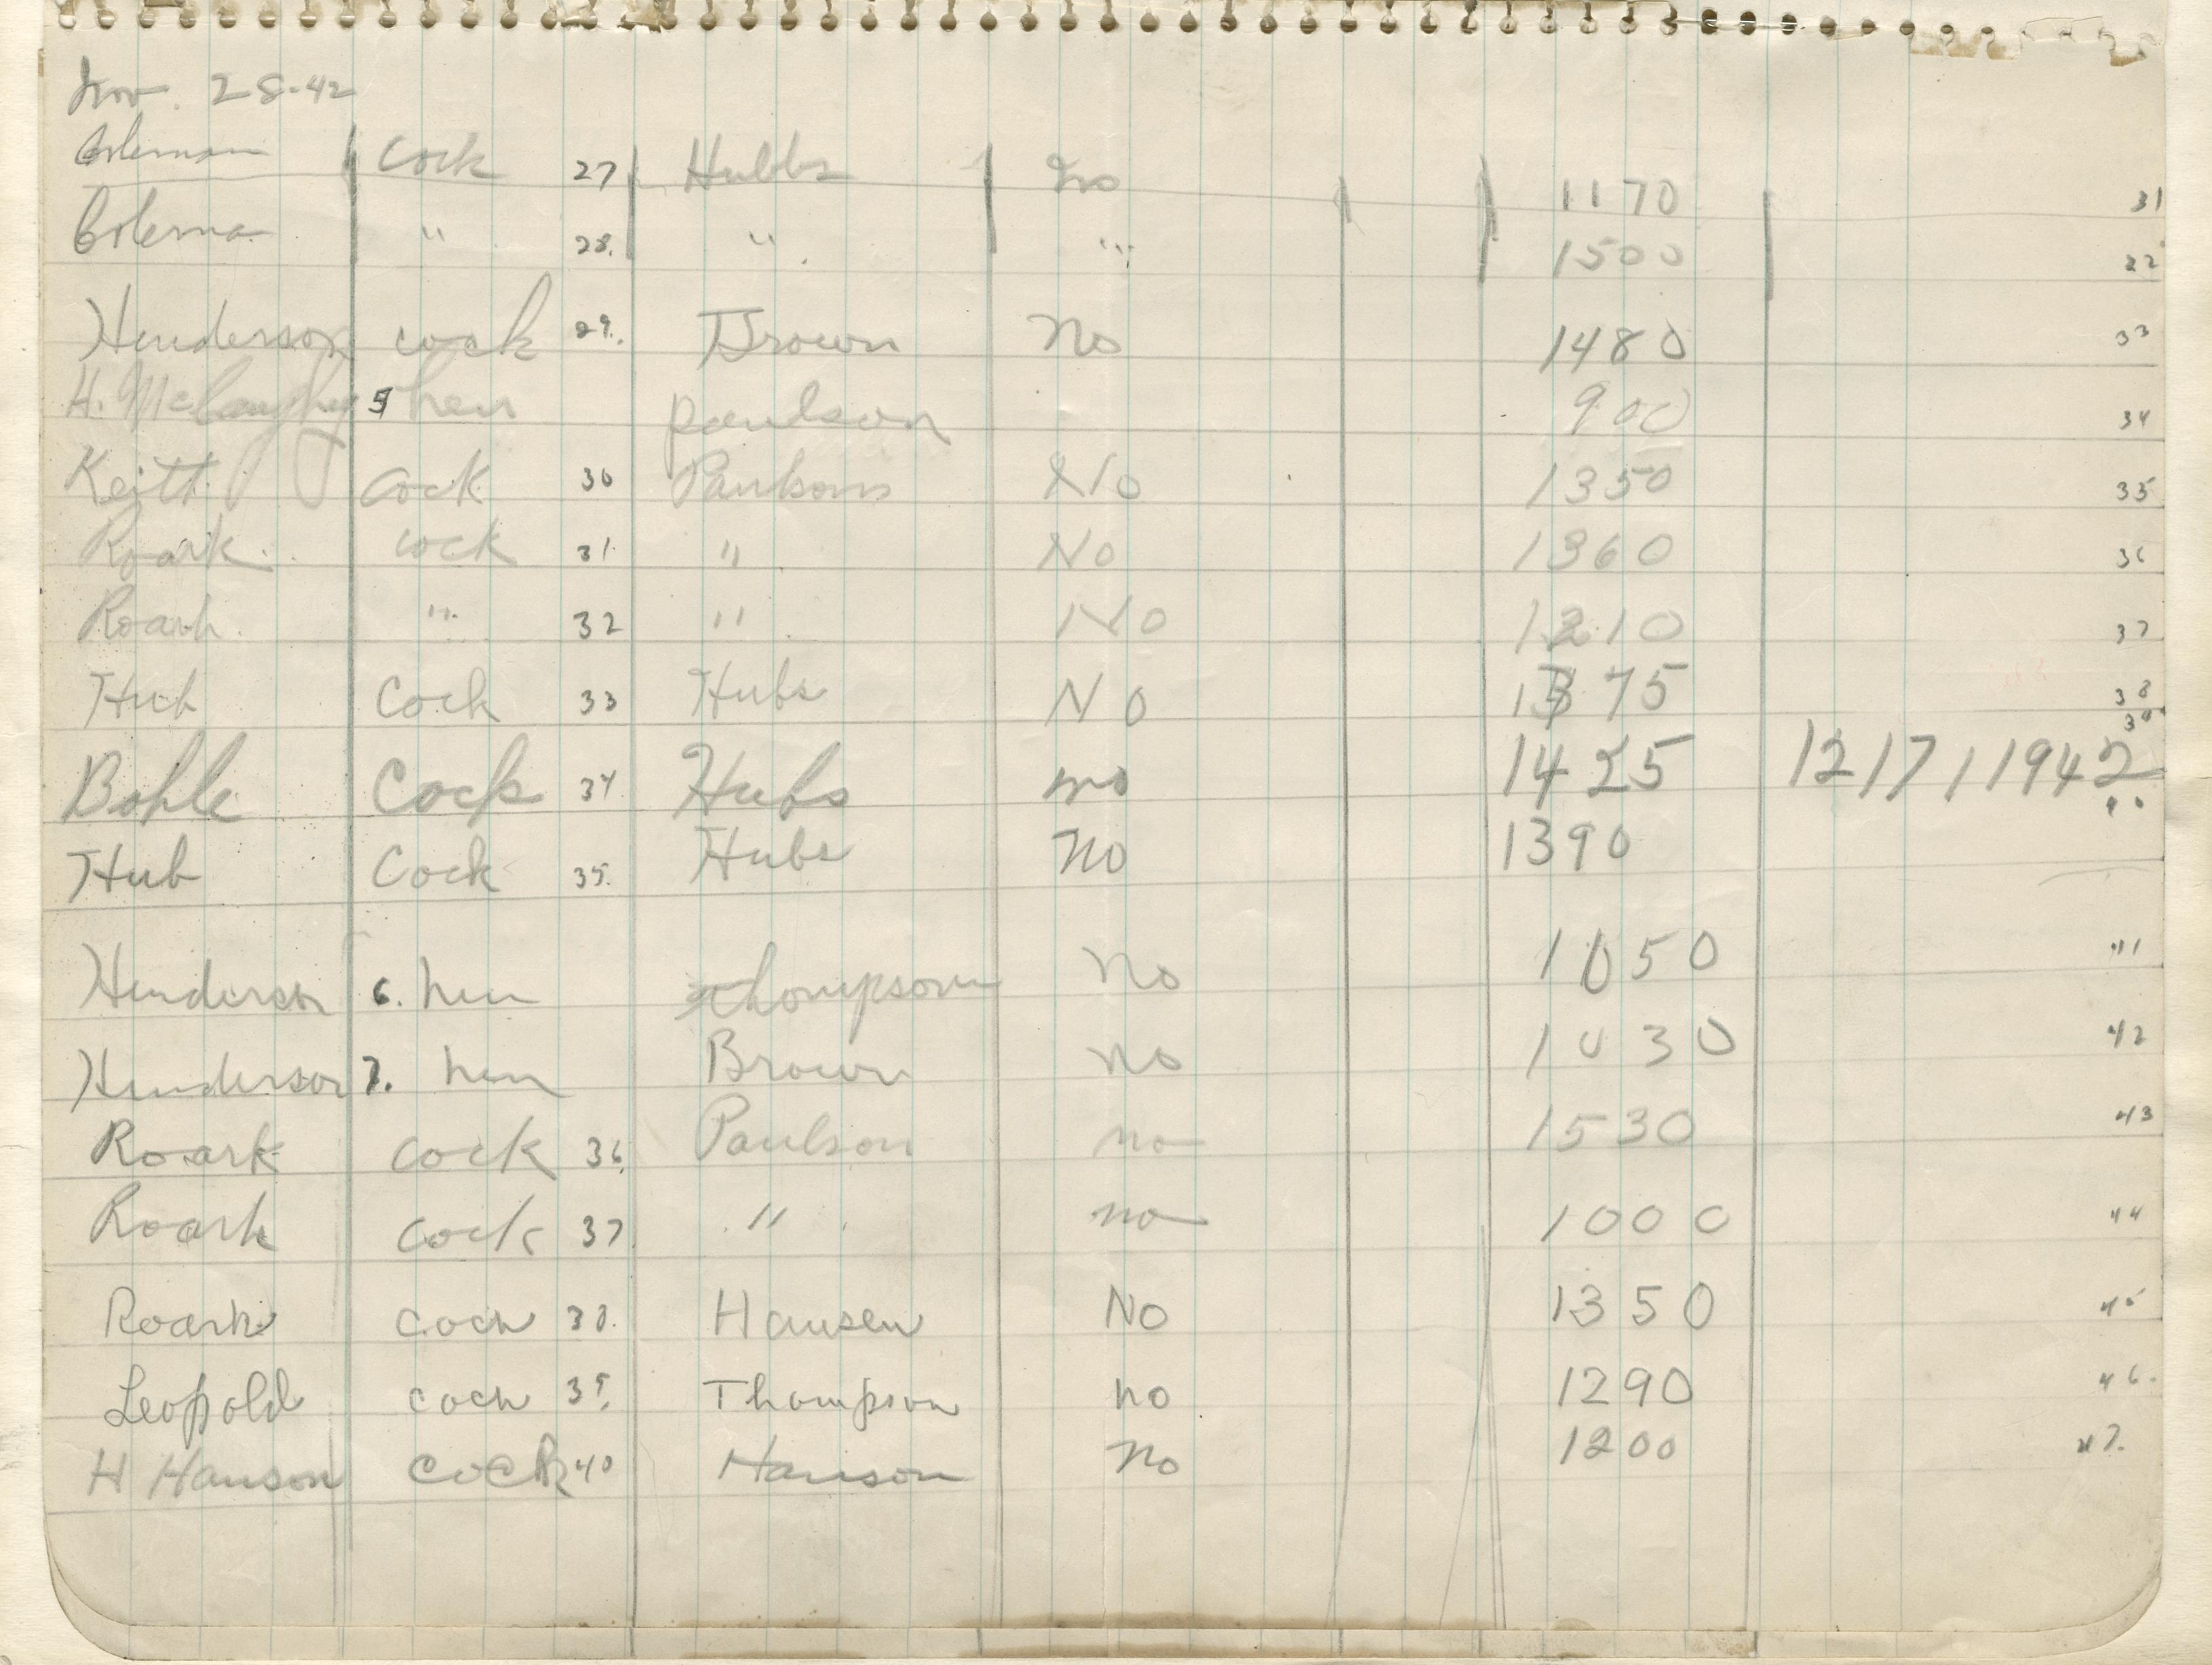 Nov. 28-42
Coleman cock 27 Hubbs no 1170 31
Colema " 28. " " 1500 32
Henderson cock 29. Brown no 1480 33
H. McLaughry 5 hen paulson 900 34
Keith cock 30 Paulsons No 1350 35
Roark cock 31 " No 1360 36
Roark " 32 " No 1210 37
Hub Cock 33 Hubs NO 1375 38
39
Bohle Cock 34 Hubs no 1425 12/7/1942
40
Hub Cock 35. Hubs no 1390
Henderson 6. hen Thompson no 1050 41
Henderson 7. hen Brown no 1030 42
Roark cock 36. Paulson no 1530 43
Roark cock 37. " no 1000 44
Roark cock 38. Hansen No 1350 45
Leopold cock 39. Thompson no 1290 46.
H Hanson cock 40 Hanson no 1200 47.